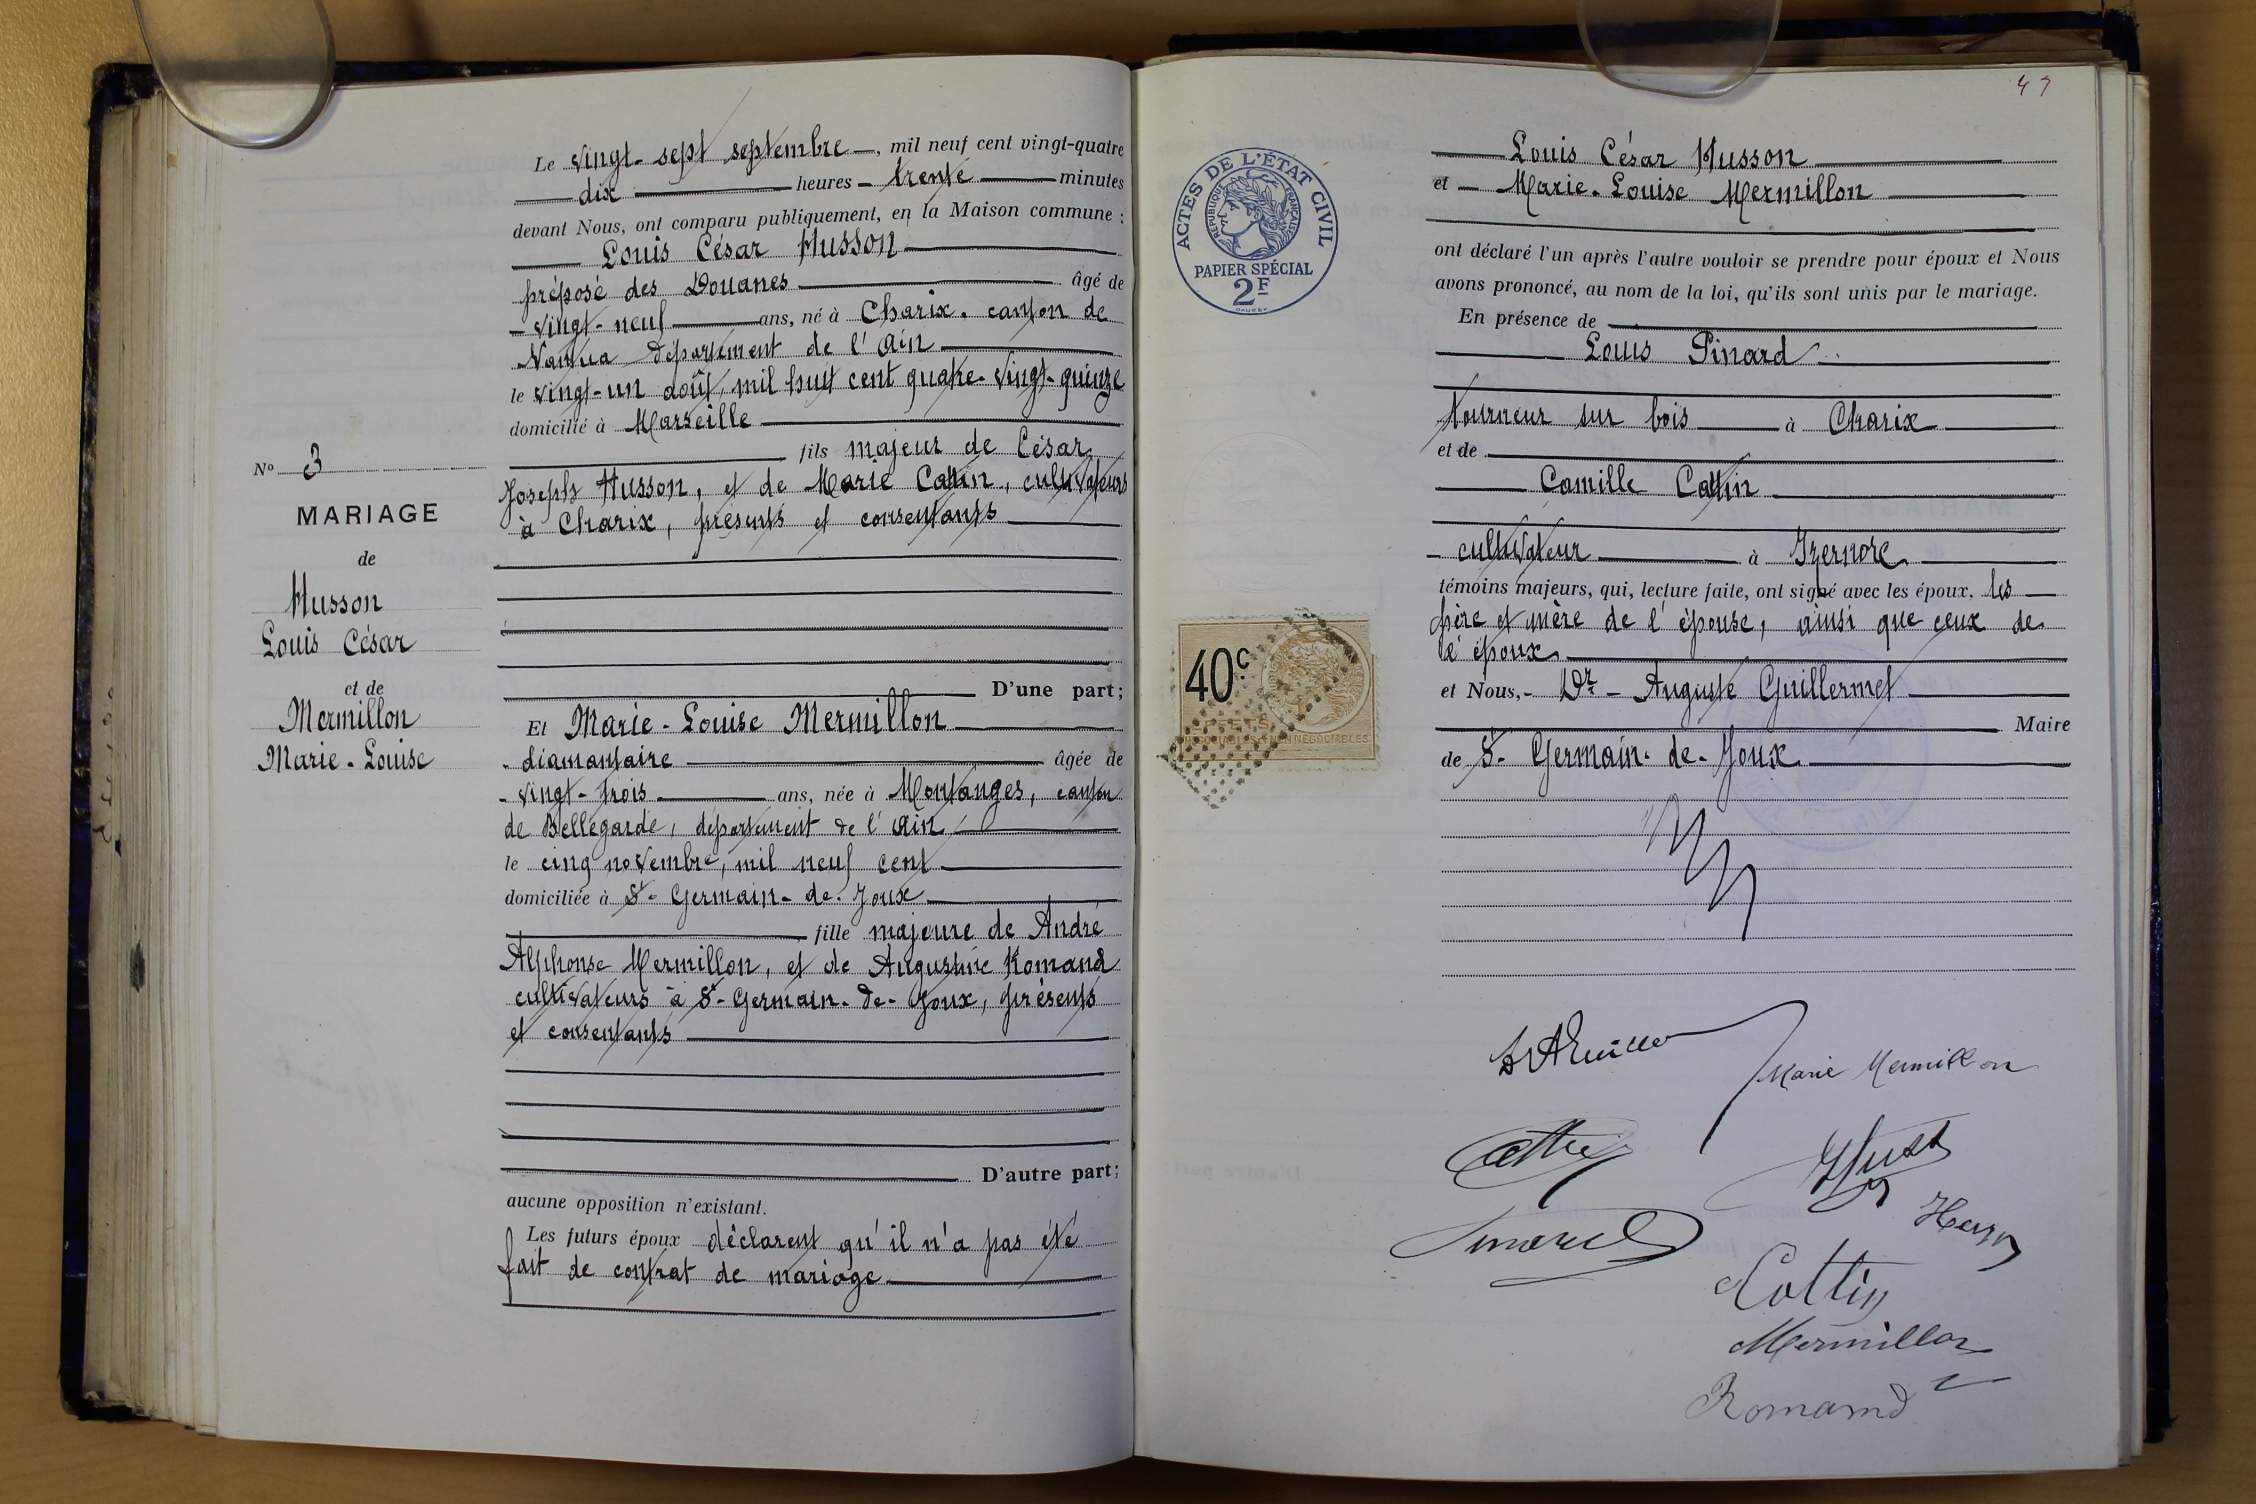 Le vingt-sept septembre, mil neuf cent vingt-quatre
dix heures trente minutes
devant Nous, ont comparu publiquement, en la Maison commune :
Louis César Husson
préposé des Douanes âgé de
vingt-neuf ans, né à Charix, canton de
Nantua département de l'Ain
le vingt-un août, mil huit cent quatre-vingt-quinze
domicilié à Marseille
fils majeur de César
Joseph Husson, et de Marie Cattin, cultivateurs
à Charix, présents et consentants
No 3
MARIAGE
de
Husson
Louis César
et de
Mermillon
Marie-Louise
D'une part;
Et Marie-Louise Mermillon
diamantaire âgée de
vingt-trois ans, née à Montanges, canton
de Bellegarde, département de l'Ain
le cinq novembre, mil neuf cent
domiciliée à St-Germain-de-Joux
fille majeure de André
Alphonse Mermillon, et de Augustine Romand
cultivateurs à St-Germain-de-Joux, présents
et consentants
D'autre part;
aucune opposition n'existant.
Les futurs époux déclarent qu'il n'a pas été
fait de contrat de mariage
47
ACTES DE L'ÉTAT CIVIL
RÉPUBLIQUE FRANÇAISE
PAPIER SPÉCIAL
2F
40c
EFFETS
NON NÉGOCIABLES
Louis César Husson
et Marie-Louise Mermillon
ont déclaré l'un après l'autre vouloir se prendre pour époux et Nous
avons prononcé, au nom de la loi, qu'ils sont unis par le mariage.
En présence de
Louis Pinard
tourneur sur bois à Charix
et de
Camille Cattin
cultivateur à Izernore
témoins majeurs, qui, lecture faite, ont signé avec les époux, les
père et mère de l'épouse, ainsi que ceux de
l'époux
et Nous, Dr-Auguste Guillermet
Maire
de St-Germain-de-Joux
Marie Mermillon
Cottin
Mermillon
Romand